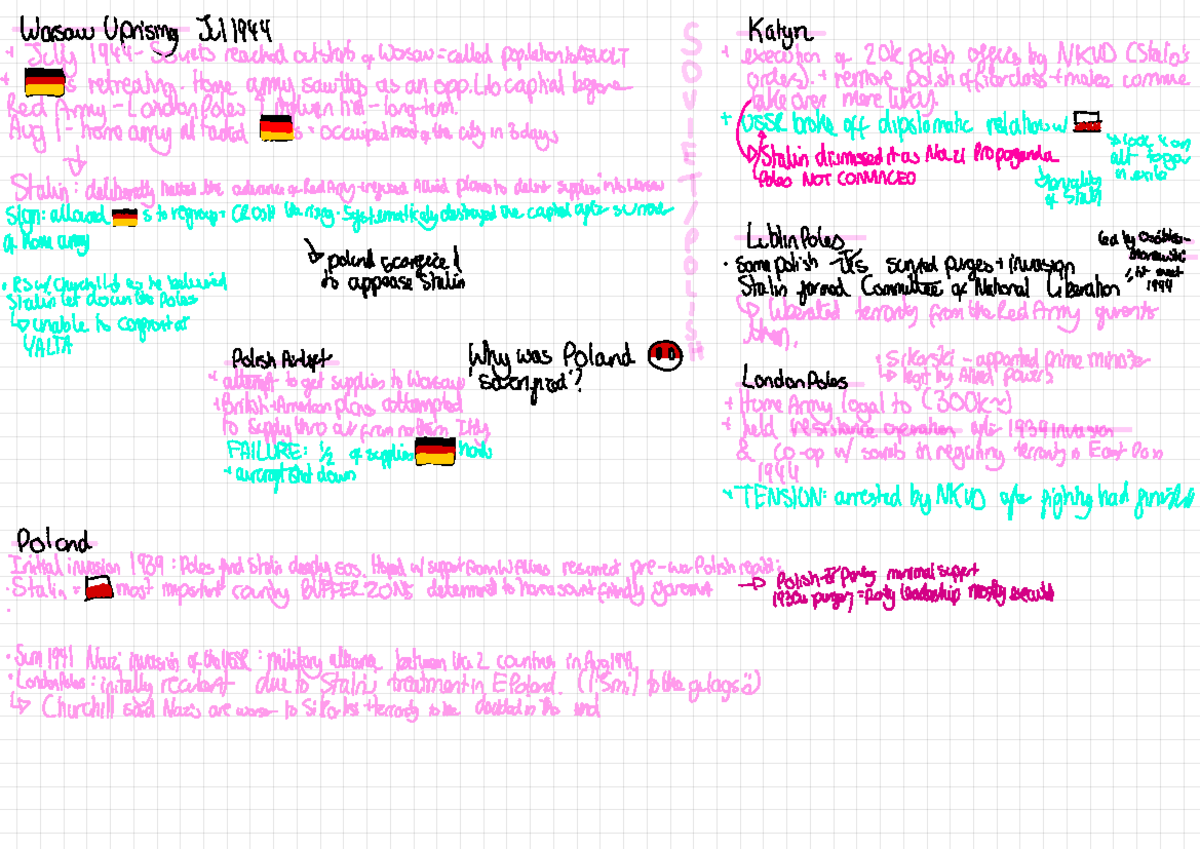 Warsaw Uprising Jul 1944
+ July 1944 - Soviets reached outskirts of Warsaw = called population to REVOLT
+ s retreating. Home army saw this as an opp. Lib capital before
Red Army - London Poles
Aug 1 - home army attacked s = occupied most of the city in 3 days
Stalin: deliberately halted the advance of Red Army - Allied planes to deliver supplies into Warsaw
Sign: allowed s to regroup + CRUSH the rising. Systematically destroyed the capital after surrender
of home army
poland scargize
to appease Stalin
Churchill
Stalin let down the Poles
↳ unable to confront at
YALTA
Polish Airlift
+ attempt to get supplies to Warsaw
+ British + American planes attempted
to supply thro air from northern Italy
FAILURE: 1/2 of supplies
+ aircraft shot down
Why was Poland
'sacrificed'?
SOVIET/POLISH
Katyn
+ execution of 20k polish officers by NKVD (Stalin's
orders). + remove polish officer class + make commie
take over more likely.
+ USSR broke off diplomatic relation w
Stalin dismissed it as Nazi Propaganda
Poles NOT CONVINCED
+ look @ an
alt
in exile
of Stalin
Lublin Poles
led by
1944
• some polish survived purges + invasion
Stalin formed Committee of National Liberation
↳ liberated territory from the Red Army
them,
London Poles
+ Sikorski - appointed prime minister
↳ legit by Allied powers
+ Home Army loyal to (300k~)
+ held resistance operation after 1939 invasion
& co-op w/ soviets in regaining territory in East
1944
+ TENSION: arrested by NKVD after fighting had finished
Poland
Initial invasion 1939: Poles find Stalin deeply sus. Hoped w/ support from W Allies pre-war Polish
• Stalin = most important country BUFFER ZONE determined to have soviet friendly government
→ Polish minimal support
1930s purges = Party leadership mostly executed
• Sum 1941 Nazi invasion of the USSR: military alliance between the 2 countries in Aug 1941
• London Poles: initially reluctant due to Stalin's treatment in E Poland. (1.5mil to the gulags :))
↳ Churchill said Nazis are worse to Sikorski + territory to be decided in the end